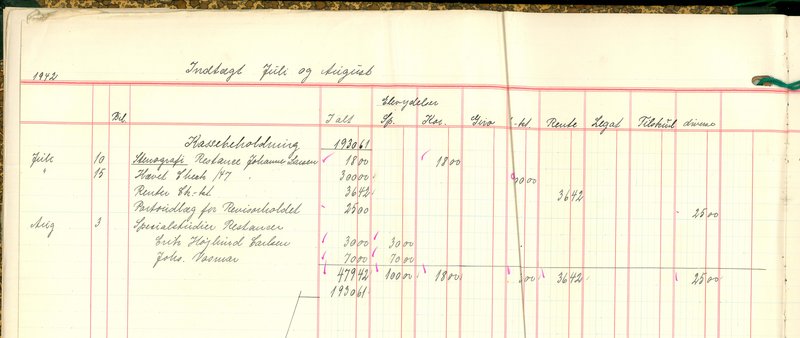 Indtægt Juli og August
1942
Elevydelser
Bil. I alt Sp. Hor. Giro -kt. Rente Legat Tilskud diverse
Kassebeholdning 19306 1
Juli 10 Stenografi Restance Johanne Larsen 18 00 18 00
" 15 Hævet Check /47 300 00 00 00
Renter Ck.-kt. 36 42 36 42
Portoudlæg for Revisorholdet 25 00 25 00
Aug 3 Specialstudier Restancer
Erik Højlund Carlsen 30 00 30 00
Johs. Vosmar 70 00 70 00
479 42 100 00 18 00 00 36 42 25 00
193061